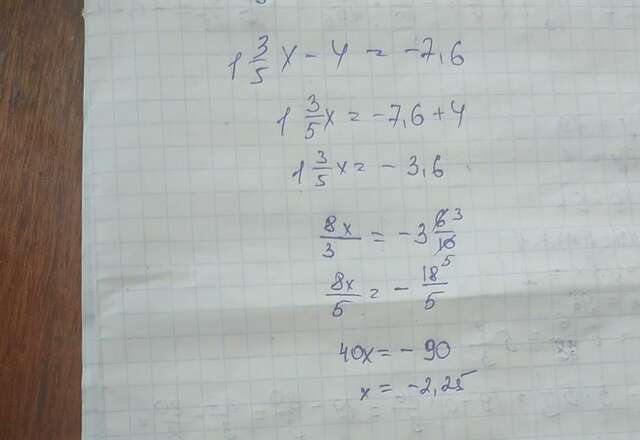 1 3/5 x - 4 = -7,6
1 3/5 x = -7,6 + 4
1 3/5 x = -3,6
8x/3 = -3 6/10 3 5
8x/5 = - 18/5
40x = -90
x = -2,25